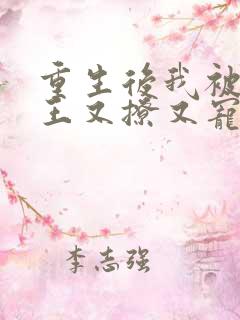 重生後我被
王又撩又寵
李志强